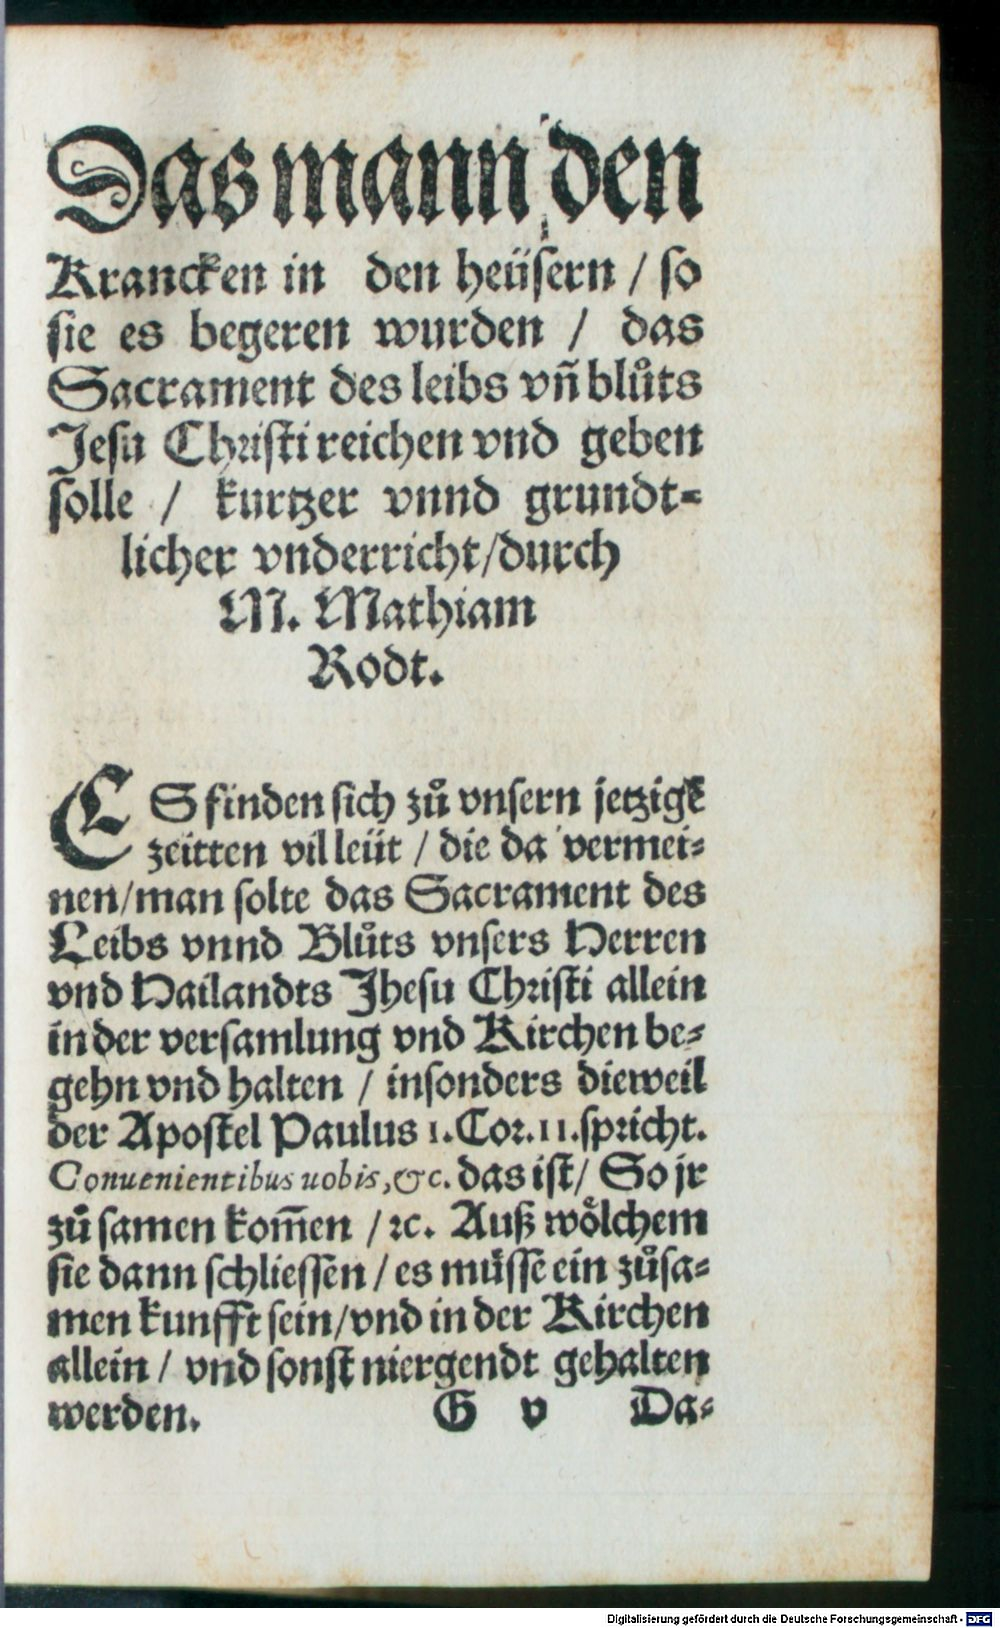 Das mann den
Krancken in den heüsern / so
sie es begeren wurden / das
Sacrament des leibs vñ blůts
Jesu Christi reichen vnd geben
solle / kurtzer vnnd grundt-
licher vnderricht/durch
M. Mathiam
Rodt.
ES finden sich zů vnsern jetzigẽ
zeitten vil leüt / die da vermei-
nen/man solte das Sacrament des
Leibs vnnd Blůts vnsers Herren
vnd Hailandts Jhesu Christi allein
in der versamlung vnd Kirchen be-
gehn vnd halten / insonders dieweil
der Apostel Paulus 1. Cor. 11. spricht.
Conuenientibus uobis, &c. das ist/ So jr
zů samen kom̃en / ꝛc. Auß wölchem
sie dann schliessen / es müsse ein zůsa-
men kunfft sein/vnd in der Kirchen
allein / vnd sonst niergendt gehalten
werden. G v Da-
Digitalisierung gefördert durch die Deutsche Forschungsgemeinschaft - DFG